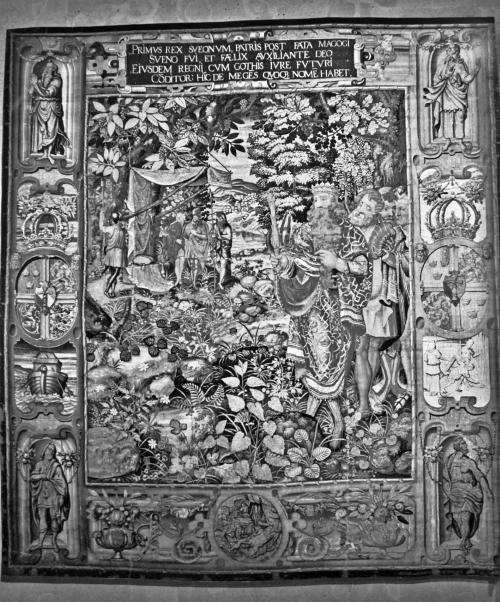 PRIMVS REX SVEONVM, PATRIS POST FATA MAGOGI
SVENO FVI, ET FÆLIX AVXILIANTE DEO
EIVSDEM REGNI CVM GOTHIS IVRE FVTVRI
CŌDITOR: HIC DE ME GĒS QVOQȜ NOMĒ HABET.